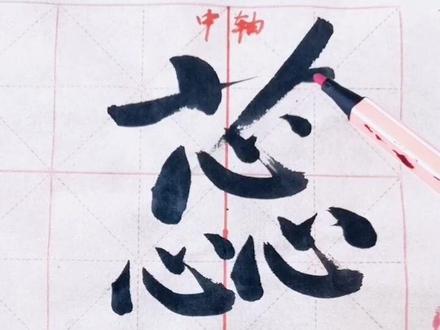 中轴
蕊